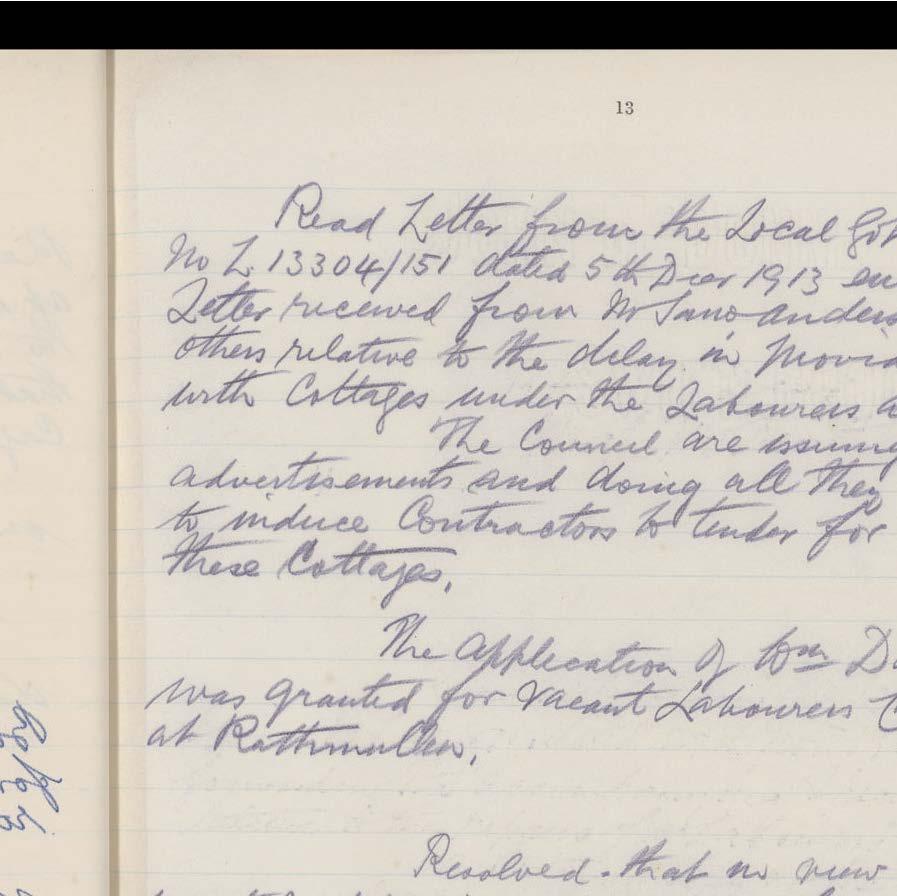 13
Read Letter from the Local Gov
No L. 13304/151 dated 5th Decr 1913 en
Letter received from Mr Anders
others relative to the delay in Provid
with Cottages under the Labourers A
The Council are issuing
advertisements and doing all they
to induce Contractors to tender for
these Cottages.
The application of Wm D
was granted for Vacant Labourers C
at Rathmullen.
Resolved - that in view